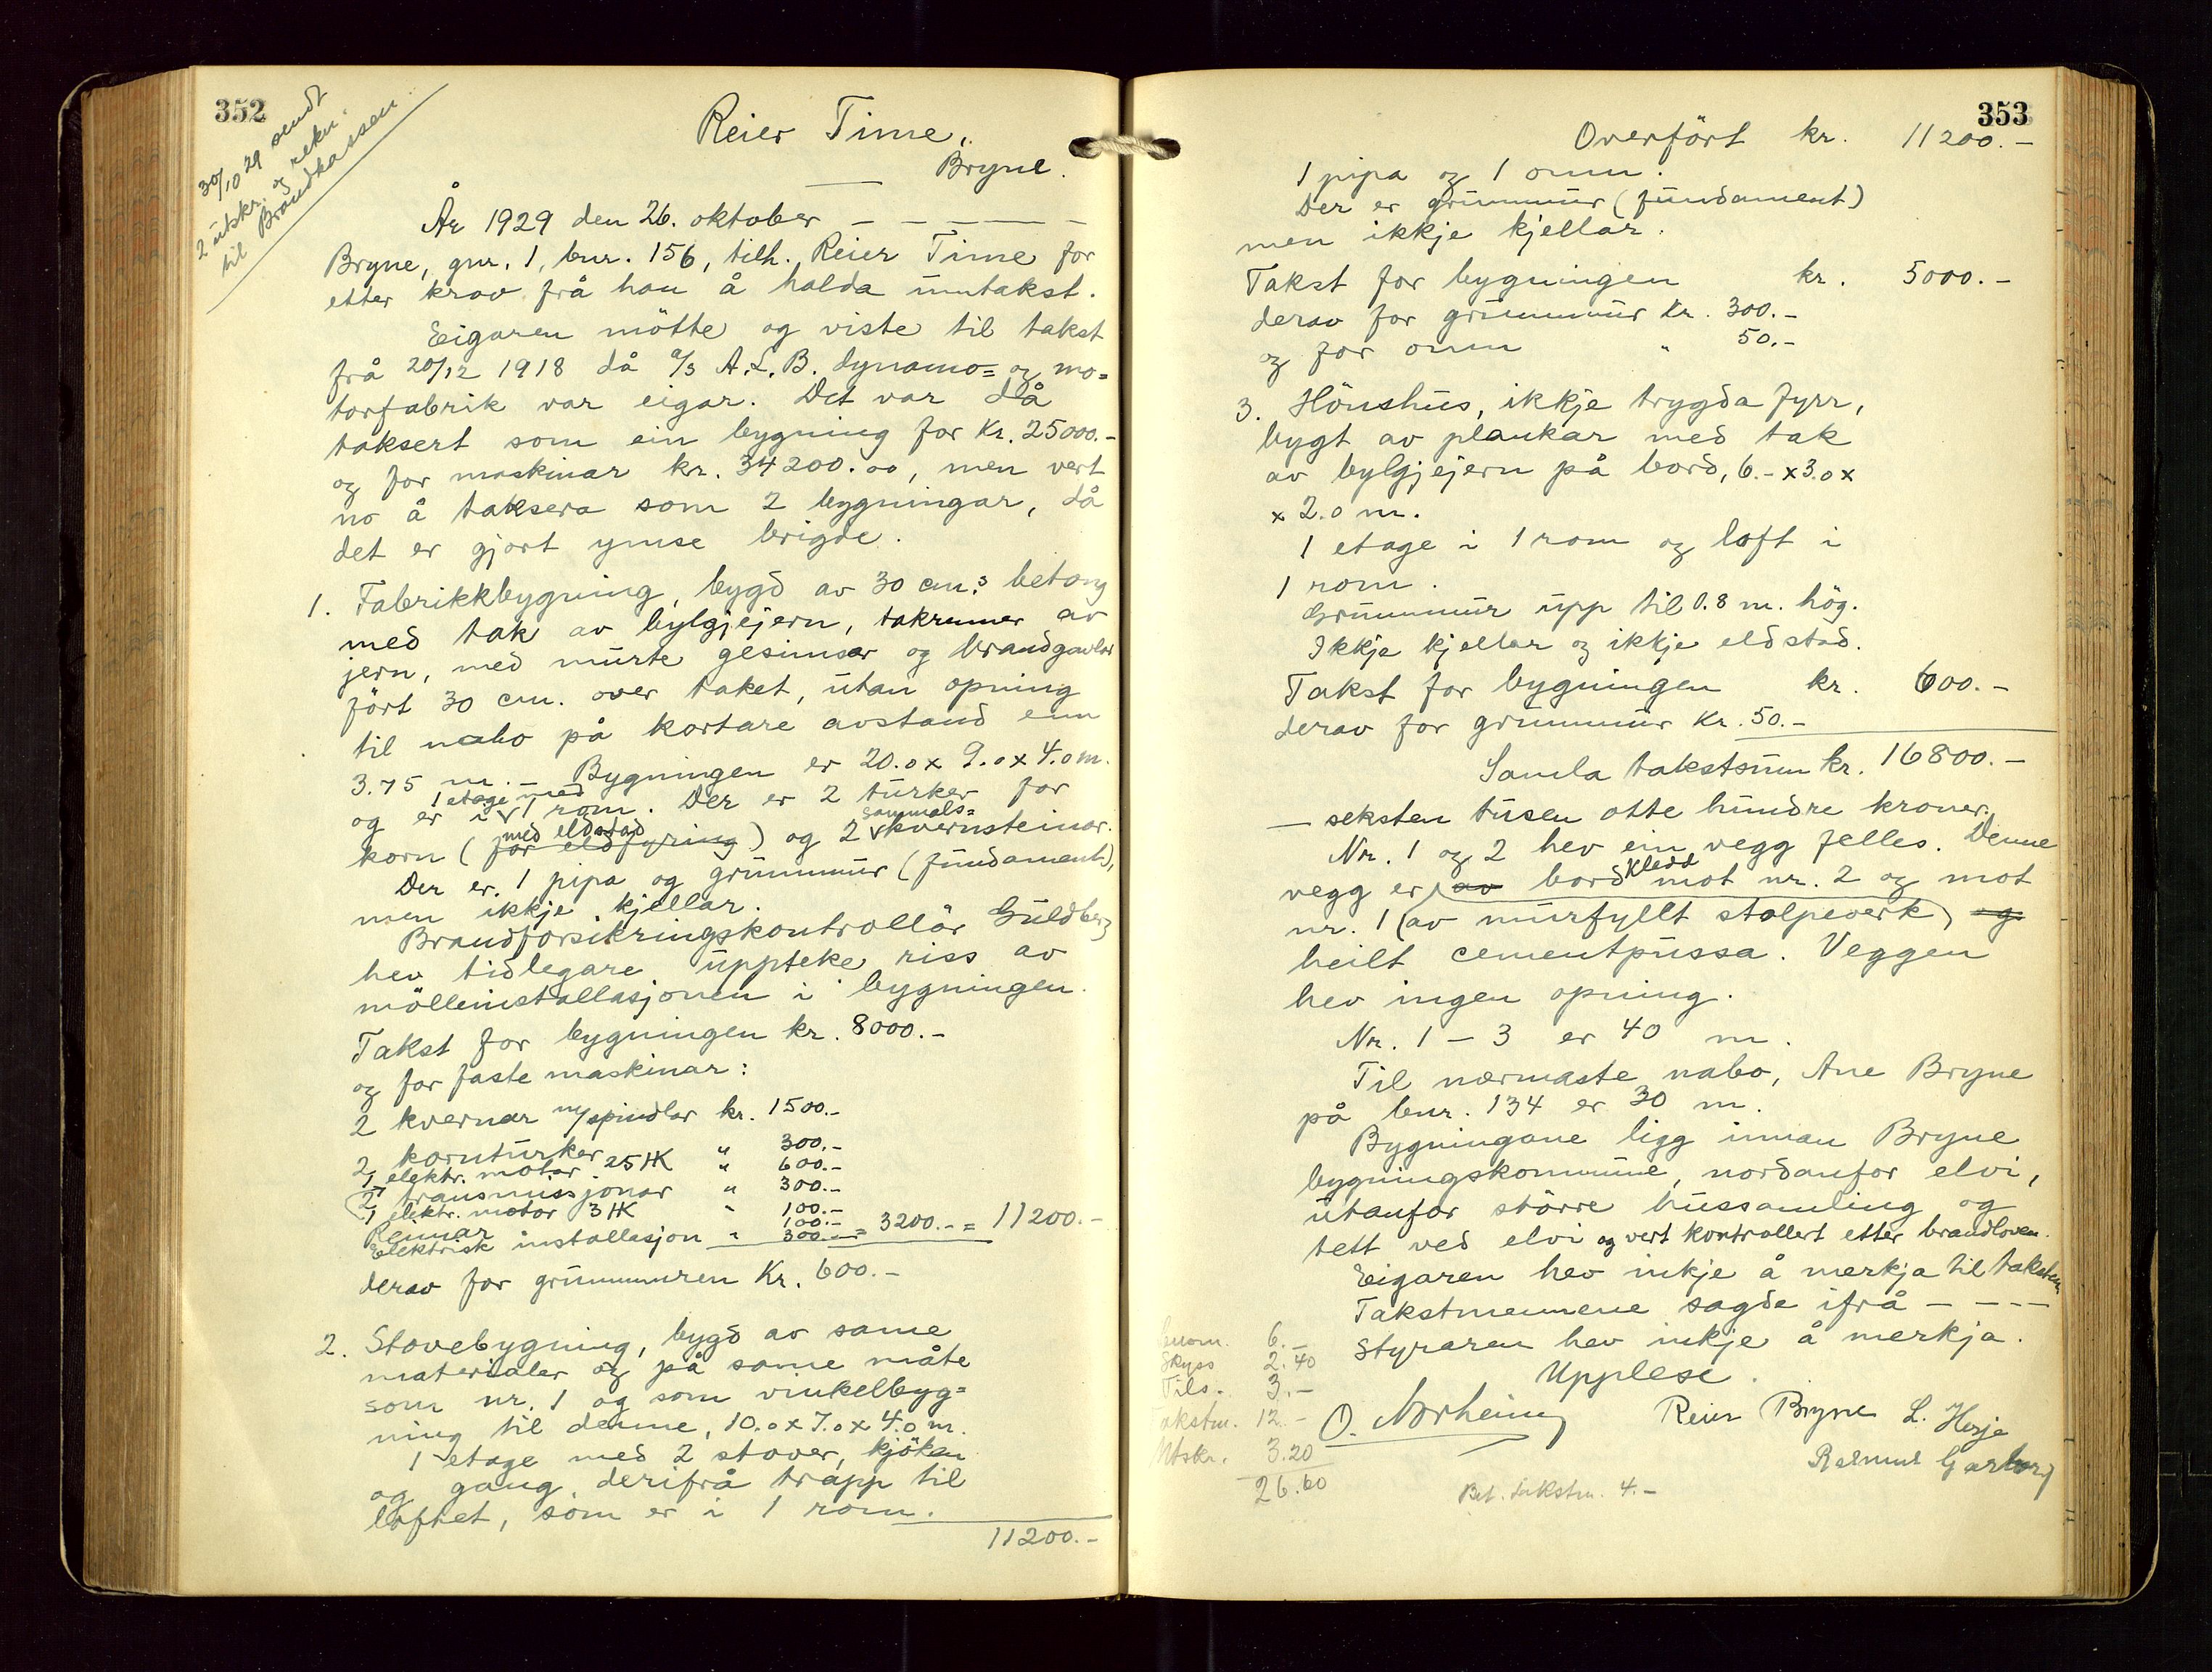 352
30/10 29 sendt
2 utskr. og rekn.
til Brandkassen
Reier Time,
Bryne.
År 1929 den 26. oktober – – – – –
Bryne, gnr. 1, bnr. 156, tilh. Reier Time for
etter krav frå han å halda umtakst.
Eigaren mötte og viste til takst
frå 20/12 1918 då a/s A.L.B. dynamo= og mo=
torfabrik var eigar. Det var då
taksert som ein bygning for Kr. 25000.-
og for maskinar kr. 34200.00, men vert
no å taksera som 2 bygningar, då
det er gjort ymse brigde.
1. Fabrikkbygning, bygd av 30 cm.s betong
med tak av bylgjejern, takrenner av
jern, med murte gesimser og brandgavlar
fört 30 cm. over taket, utan opning
til nabo på kortare avstand enn
3.75 m. – Bygningen er 20.0 x 9.0 x 4.0 m.
1 etage med
og er i 1 rom. Der er 2 turker for
med eldstad sammals=
korn (for eldfyring) og 2 kvernsteinar.
Der er 1 pipa og grunnmur (fundament),
men ikkje kjellar.
Brandforsikringskontrollör Guldberg
hev tidlegare uppteke riss av
mölleinstallasjonen i bygningen.
Takst for bygningen kr. 8000.-
og for faste maskinar:
2 kvernar m/spindlar kr. 1500.-
2 kornturker " 300.-
1 elektr. motor 25 HK " 600.-
2 transmissjonar " 300.-
1 elektr. motor 3 HK " 100.-
Reimar 100.-
Elektrisk installasjon " 300.- = 3200.- = 11200.-
derav for grunnmuren Kr. 600.-
2. Stovebygning, bygd av same
materialer og på same måte
som nr. 1 og som vinkelbyg=
ning til denne, 10.0 x 7.0 x 4.0 m.
1 etage med 2 stover, kjöken
og gang, derifrå trapp til
loftet, som er i 1 rom.
11200.-
353
Overfört kr. 11200.-
1 pipa og 1 omn.
Der er grunnmur (fundament)
men ikkje kjellar.
Takst for bygningen kr. 5000.-
derav for grunnmur kr. 300.-
og for omn " 50.-
3. Hönshus, ikkje trygda fyrr,
bygt av plankar med tak
av bylgjejern på bord, 6.- x 3.0 x
x 2.0 m.
1 etage i 1 rom og loft i
1 rom.
Grunnmur upp til 0.8 m. hög.
Ikkje kjellar og ikkje eldstad.
Takst for bygningen kr. 600.-
derav for grunnmur Kr. 50.-
Samla takstsum kr. 16800.-
– seksten tusen otte hundre kroner.
Nr. 1 og 2 hev ein vegg felles. Denne
vegg er av bordkledd mot nr. 2 og mot
nr. 1 (av murfyllt stolpeverk) og
heilt cementpussa. Veggen
hev ingen opning.
Nr. 1 – 3 er 40 m.
Til nærmaste nabo, Ane Bryne
på bnr. 134 er 30 m.
Bygningane ligg innan Bryne
bygningskommune, nordanfor elvi,
utanfor större hussamling og
tett ved elvi og vert kontrollert etter brandloven.
Eigaren hev inkje å merkja til taksten
Takstmennene sagde ifrå – – – –
Styraren hev inkje å merkja.
Upplese.
O. Norheim Reier Bryne L. Herje
Rasmus Garborg
6.-
Skyss 2.40
Tils. 3.-
Takstm. 12.-
Utskr. 3.20
26.60
Bet. takstm. 4.-